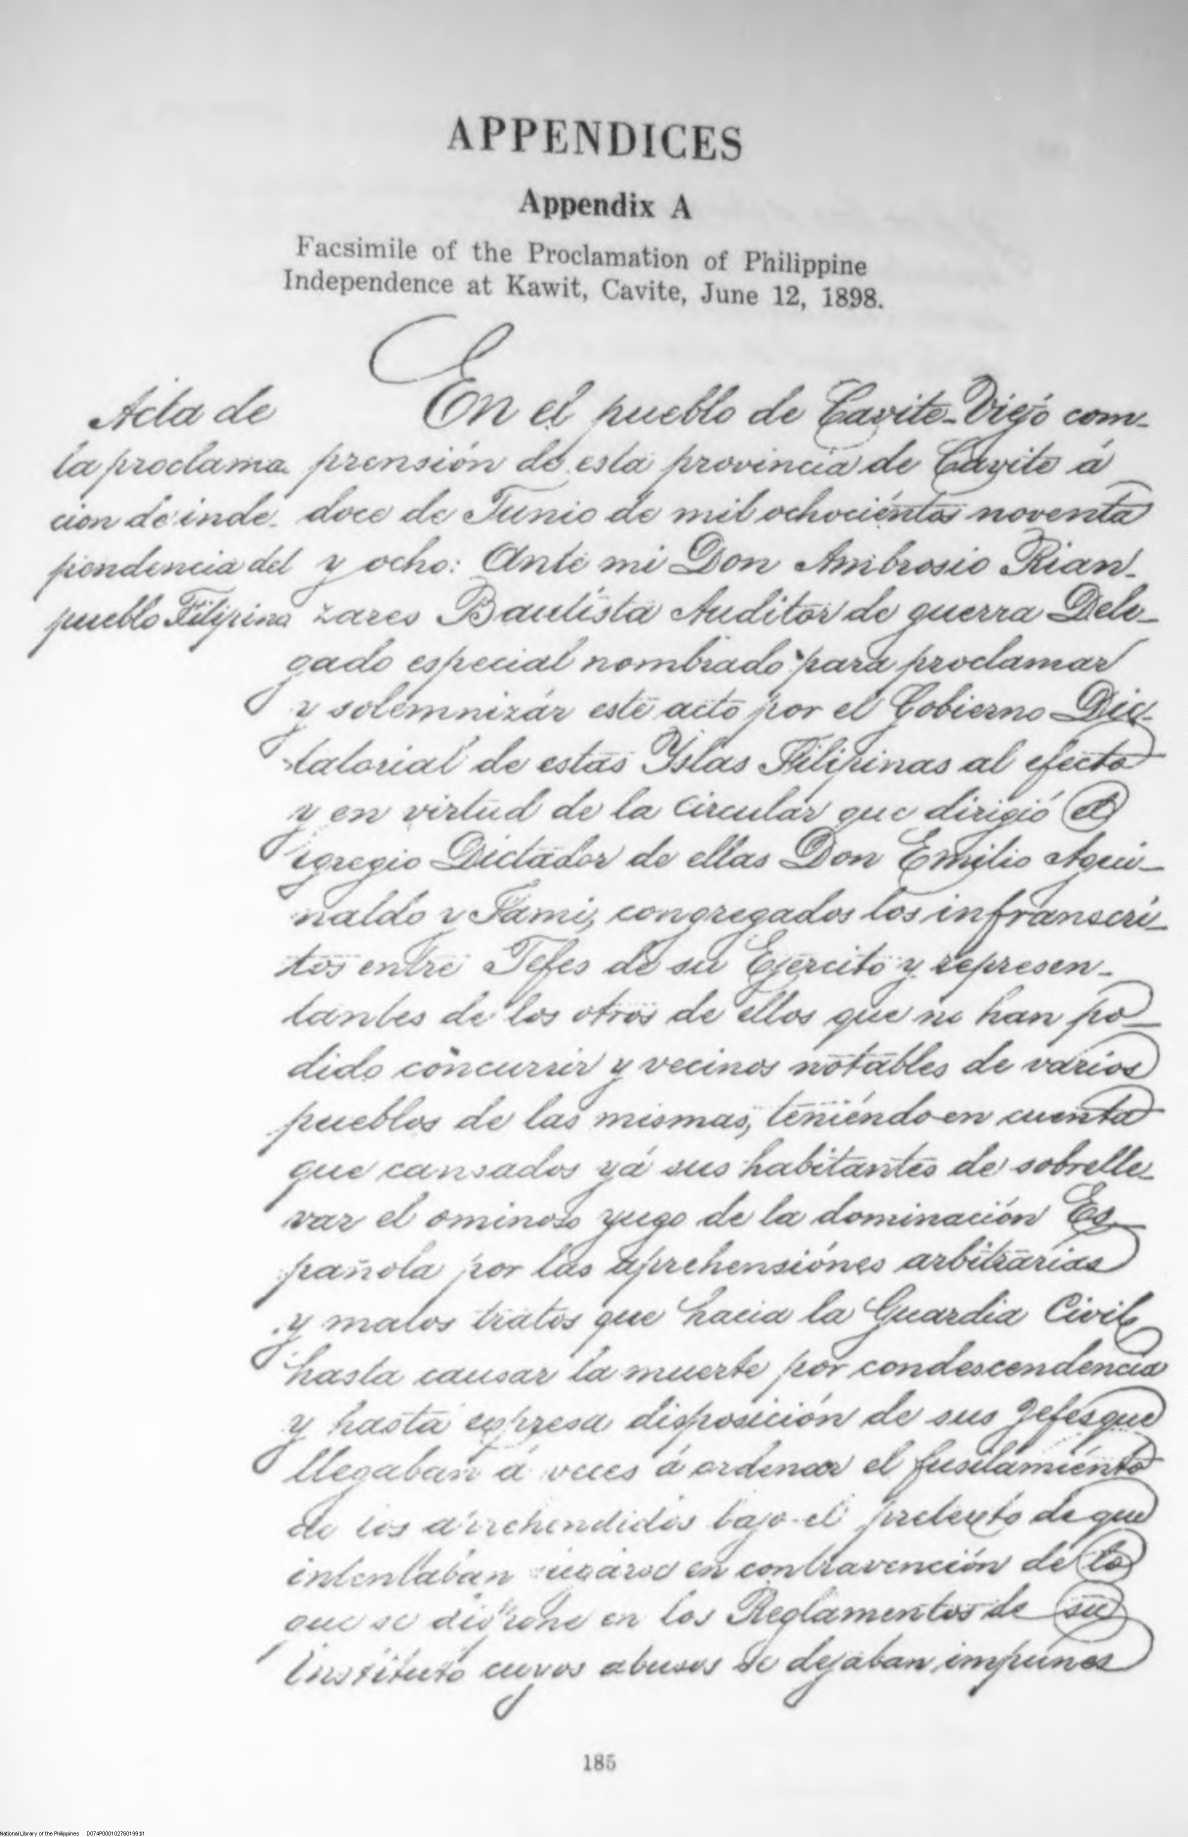 APPENDICES
Appendix A
Facsimile of the Proclamation of Philippine
Independence at Kawit, Cavite, June 12, 1898.
Acta de
la proclama
cion de inde-
pendencia del
pueblo Filipino
En el pueblo de Cavite-Viejo com-
prensión de esta provincia de Cavite á
doce de Junio de mil ochociéntos noventa
y ocho: Ante mi Don Ambrosio Rian-
zares Bautista Auditor de guerra Dele-
gado especial nombrado para proclamar
y solemnizár este acto por el Gobierno Dic-
tatorial de estas Yslas Filipinas al efecto
y en virtud de la Circular que dirigió el
egregio Dictador de ellas Don Emilio Agui-
naldo y Fami, congregados los infranscri-
tos entre Jefes de su Ejercito y represen-
tantes de los otros de ellos que no han po-
dido concurrir y vecinos notables de varios
pueblos de las mismas, teniéndo en cuenta
que cansados yá sus habitantes de sobrelle-
var el ominoso yugo de la dominación Es-
pañola por las aprehensiónes arbitrarias
y malos tratos que hacia la Guardia Civil
hasta causar la muerte por condescendencia
y hasta expresa disposición de sus gefes que
llegaban á veces á ordenar el fusilamiénto
de los aprehendidos bajo el pretexto de que
intentaban fugarse en contravención de lo
que se dispone en los Reglamentos de su
Instituto cuyos abusos se dejaban impunes
185
National Library of the Philippines